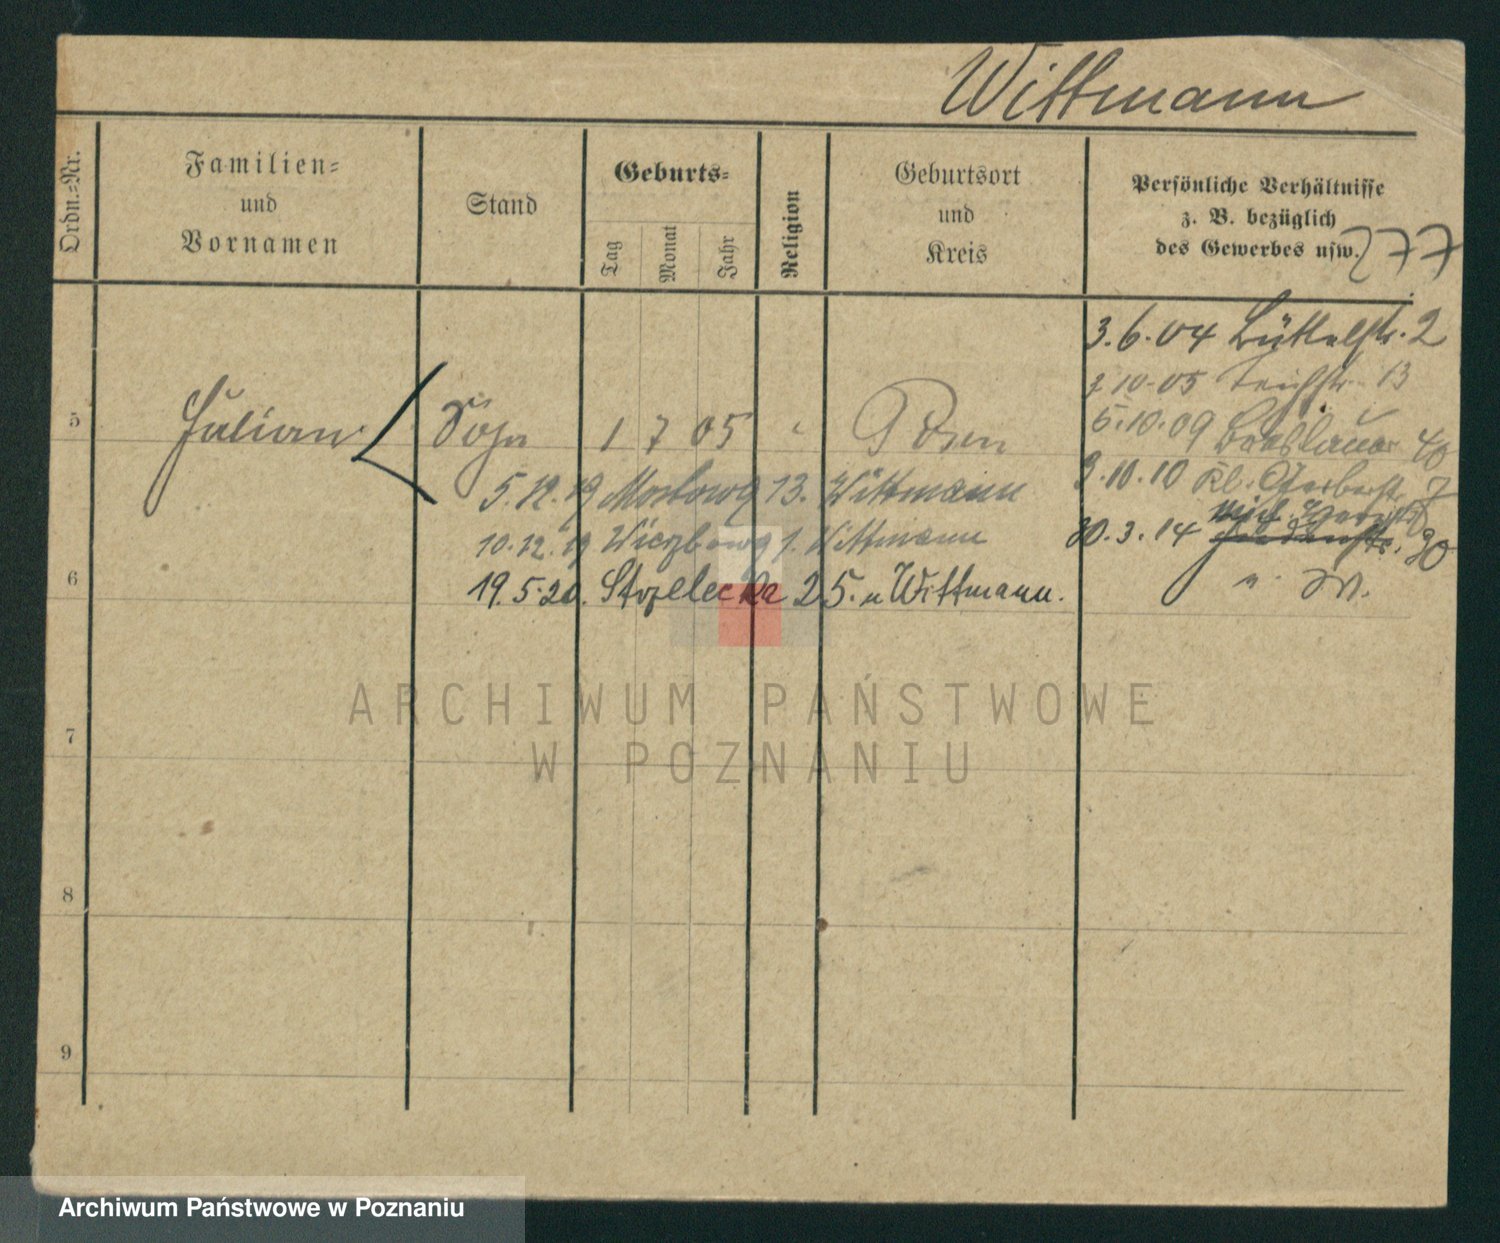 Wittmann
Ordn.=Nr.
Familien=
und
Vornamen
Stand
Geburts=
Tag
Monat
Jahr
Religion
Geburtsort
und
Kreis
Persönliche Verhältnisse
z. B. bezüglich
des Gewerbes usw.
3.6.04 Büttelstr. 2
2 10.05 Teichstr. 13
5 Julian Sohn 1 7 05 " Posen
5.10.09 Breslauer 40
3.10.10 Kl. Gerberstr. 7
5.12.19 Mostowa 13. Wittmann
30.3.14 30
10.12.19 Wittmann
6
19.5.20. Strzelecka 25. u Wittmann.
u. W.
7
8
9
ARCHIWUM PAŃSTWOWE
W POZNANIU
Archiwum Państwowe w Poznaniu